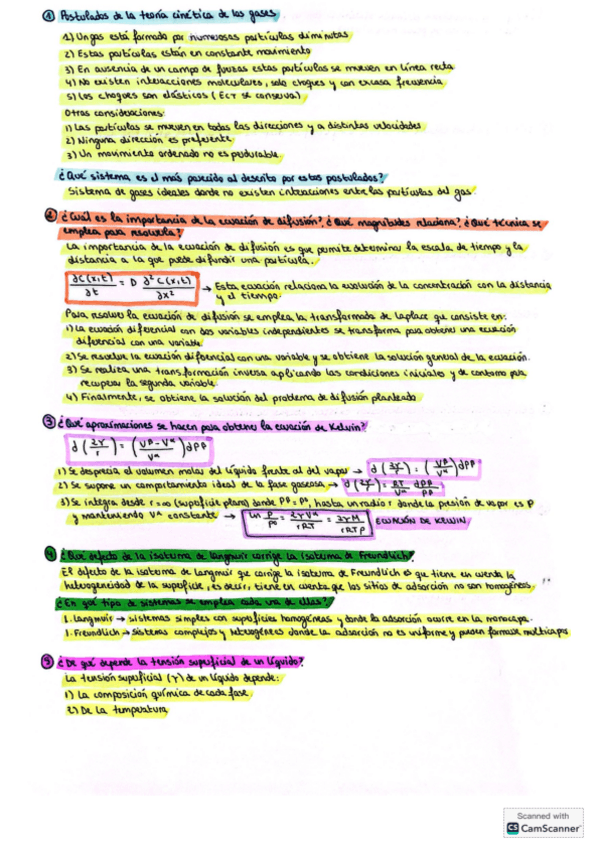 ① Postulados de la teoría cinética de los gases
1) Un gas está formado por numerosas partículas diminutas
2) Estas partículas están en constante movimiento
3) En ausencia de un campo de fuerzas estas partículas se mueven en línea recta
4) No existen interacciones moleculares, solo choques y con escasa frecuencia
5) Los choques son elásticos (ECT se conserva)
Otras consideraciones:
1) Las partículas se mueven en todas las direcciones y a distintas velocidades
2) Ninguna dirección es preferente
3) Un movimiento ordenado no es perdurable.
¿Qué sistema es el más parecido al descrito por estos postulados?
Sistema de gases ideales donde no existen interacciones entre las partículas del gas
② ¿Cuál es la importancia de la ecuación de difusión?, ¿Qué magnitudes relaciona?, ¿Qué técnica se
emplea para resolverla?
La importancia de la ecuación de difusión es que permite determinar la escala de tiempo y la
distancia a la que puede difundir una partícula.
∂C(x,t)/∂t = D ∂²C(x,t)/∂x² → Esta ecuación relaciona la evolución de la concentración con la distancia
y el tiempo.
Para resolver la ecuación de difusión se emplea la transformada de Laplace que consiste en:
1) La ecuación diferencial con dos variables independientes se transforma para obtener una ecuación
diferencial con una variable
2) Se resuelve la ecuación diferencial con una variable y se obtiene la solución general de la ecuación.
3) Se realiza una transformación inversa aplicando las condiciones iniciales y de contorno para
recuperar la segunda variable.
4) Finalmente, se obtiene la solución del problema de difusión planteado
③ ¿Qué aproximaciones se hacen para obtener la ecuación de Kelvin?
d(2γ/r) = (Vβ - Vα/Vα) dPβ
1) Se desprecia el volumen molar del líquido frente al del vapor → d(2γ/r) = (Vβ/Vα) dPβ
2) Se supone un comportamiento ideal de la fase gaseosa → d(2γ/r) = RT/Vα dPβ/Pβ
3) Se integra desde r=∞ (superficie plana) donde Pβ = P°, hasta un radio r donde la presión de vapor es P
y manteniendo Vα constante → ln P/P° = 2γVα/rRT = 2γM/rRTρ ECUACIÓN DE KELVIN
④ ¿Qué defecto de la isoterma de Langmuir corrige la isoterma de Freundlich?
El defecto de la isoterma de Langmuir que corrige la isoterma de Freundlich es que tiene en cuenta la
heterogeneidad de la superficie, es decir, tiene en cuenta que los sitios de adsorción no son homogéneos.
¿En qué tipo de sistemas se emplea cada una de ellas?
I. Langmuir → sistemas simples con superficies homogéneas y donde la adsorción ocurre en la monocapa.
I. Freundlich → sistemas complejos y heterogéneos donde la adsorción no es uniforme y pueden formarse multicapas
⑤ ¿De qué depende la tensión superficial de un líquido?
La tensión superficial (γ) de un líquido depende:
1) La composición química de cada fase.
2) De la temperatura
Scanned with
CS CamScanner